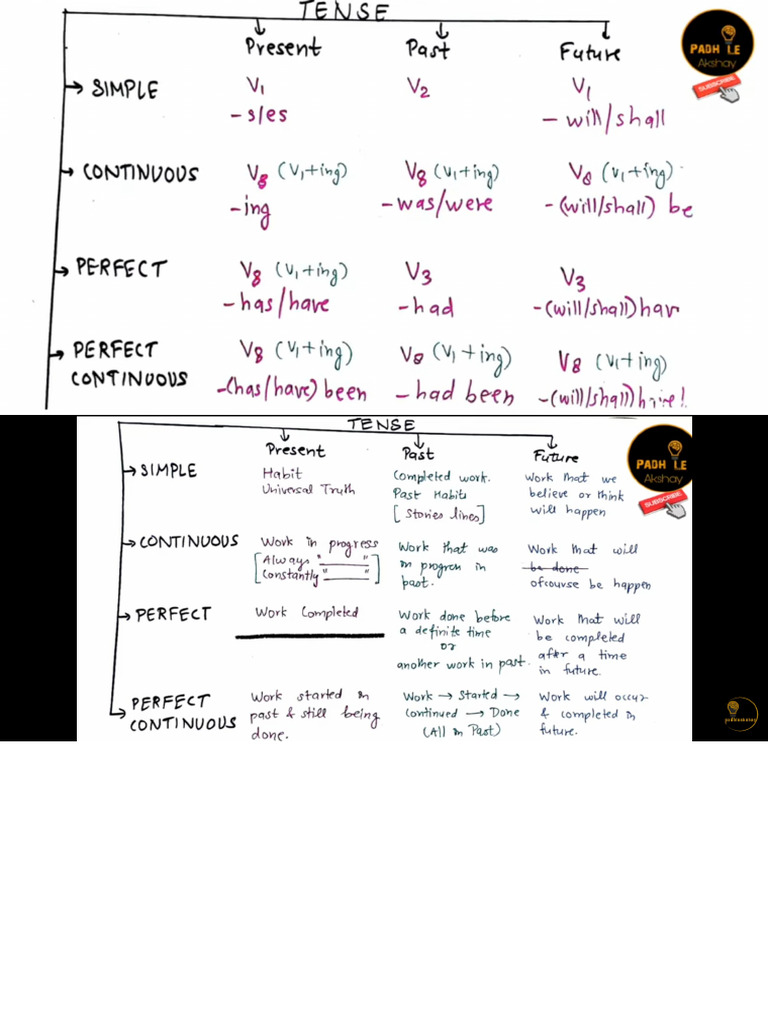 TENSE
Present Past Future
PADH LE
Akshay
SUBSCRIBE
→ SIMPLE V1 V2 V1
-s/es - will/shall
→ CONTINUOUS V8 (V1+ing) V8 (V1+ing) V8 (V1+ing)
-ing -was/were -(will/shall) be
→ PERFECT V8 (V1+ing) V3 V3
-has/have -had -(will/shall)hav
→ PERFECT V8 (V1+ing) V8 (V1+ing) V8 (V1+ing)
CONTINUOUS -(has/have) been -had been -(will/shall)
TENSE
Present Past Future
PADH LE
Akshay
SUBSCRIBE
→ SIMPLE Habit Completed work. Work that we
Universal Truth Past Habits believe or think
[Stories lines] will happen
→ CONTINUOUS Work in progress Work that was Work that will
[Always "____" in progren in be done
Constantly "____"] past. ofcourse be happen
→ PERFECT Work Completed Work done before Work that will
a definite time be completed
or after a time
another work in past. in future.
→ PERFECT Work started in Work → Started → Work will occur
CONTINUOUS past & still being Continued → Done & completed in
done. (All in Past) future.